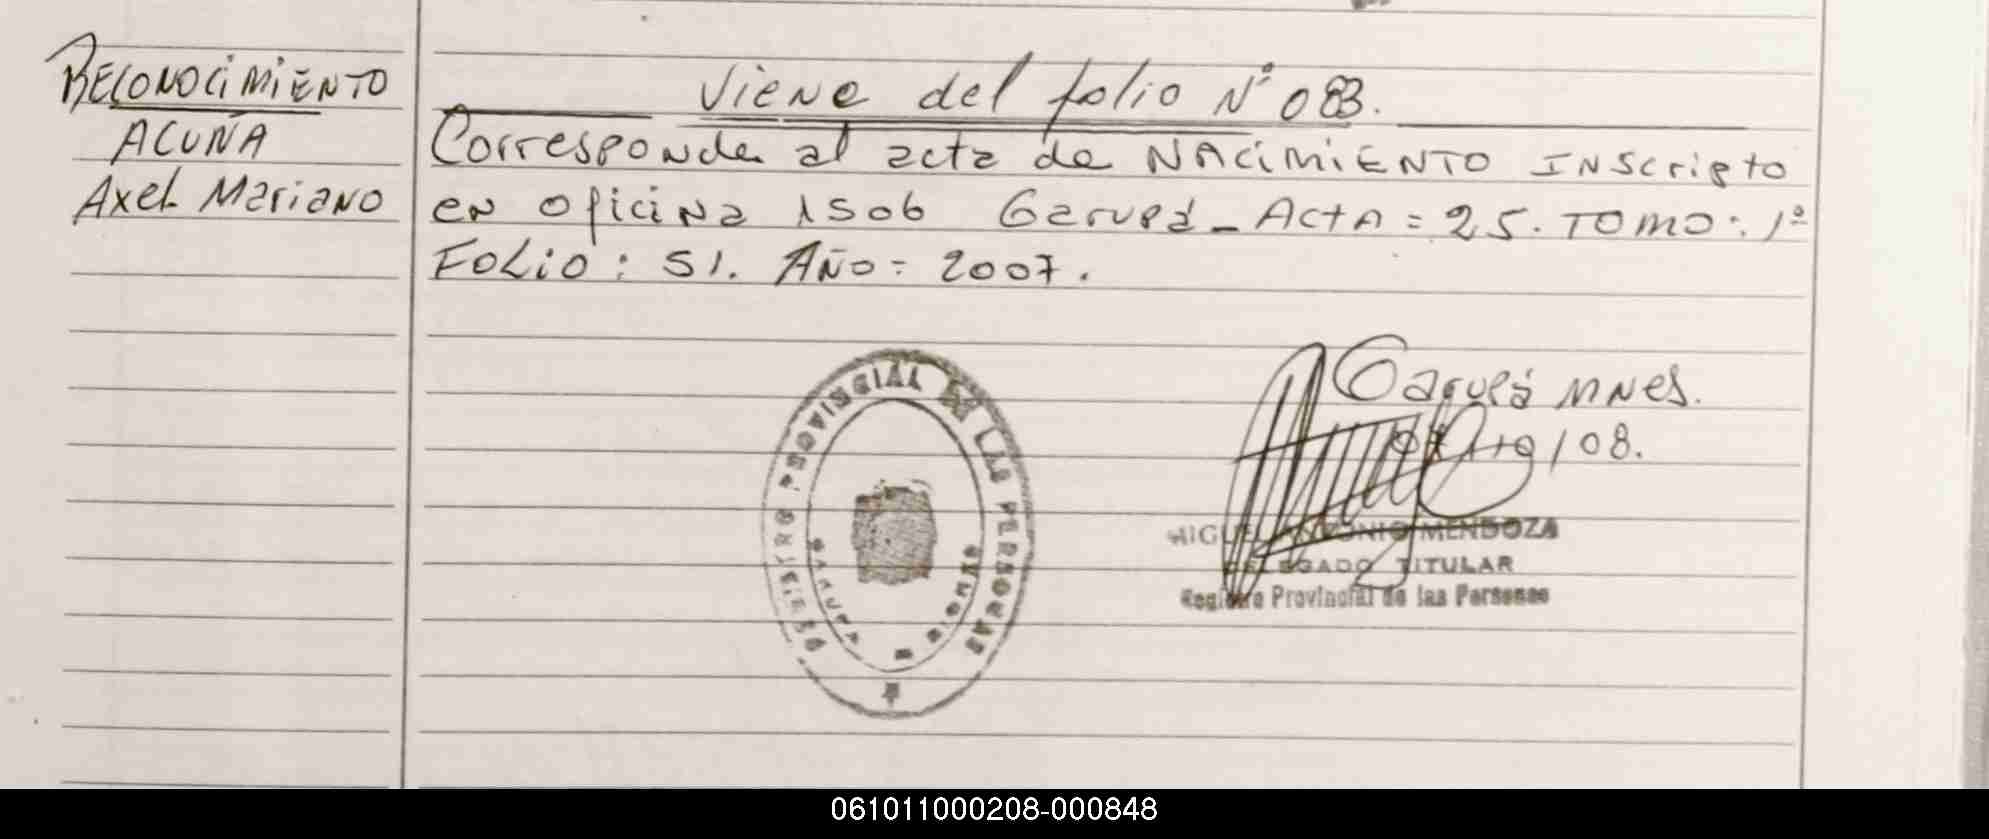 RECONOCIMIENTO
ACUÑA
Axel Mariano
Viene del folio N° 083.
Corresponde al acta de NACIMIENTO INScripto
en oficina 1506 Garupá - Acta = 25. TOMO: 1°
FOLio: 51. Año: 2007.
REGISTRO PROVINCIAL DE LAS PERSONAS
GARUPA
Garupá MNES.
/08.
MIGUEL ANTONIO MENDOZA
DELEGADO TITULAR
Registro Provincial de las Personas
061011000208-000848